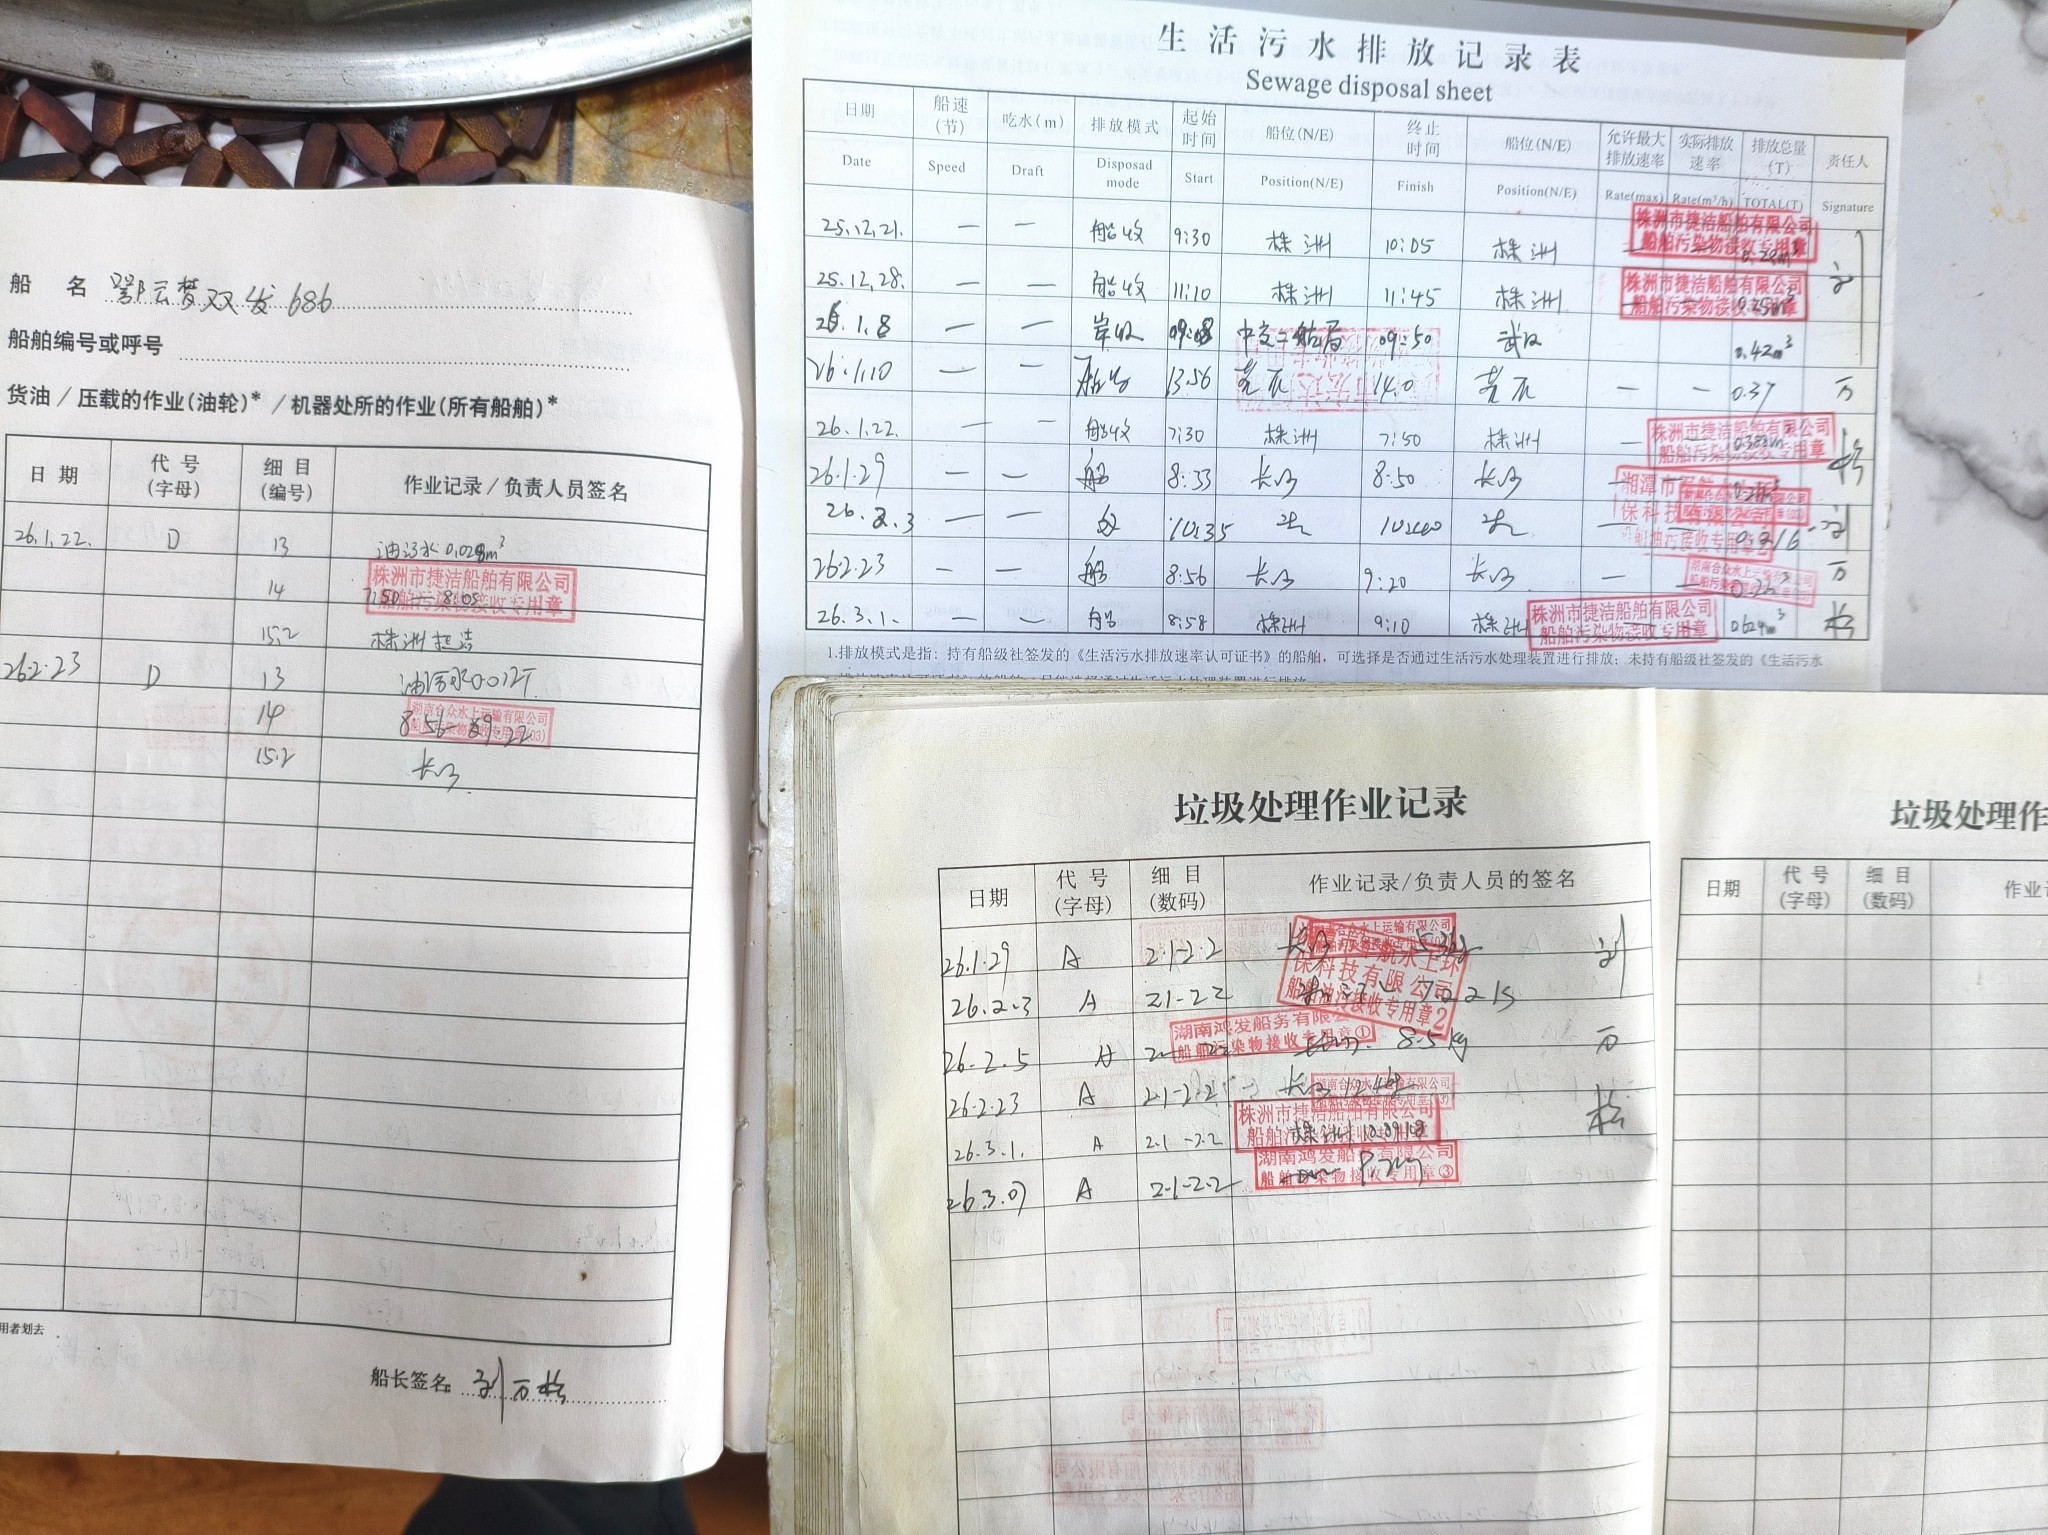 船 名 鄂云梦双发686
船舶编号或呼号
货油 / 压载的作业(油轮)* / 机器处所的作业(所有船舶)*
日 期 代 号 (字母) 细 目 (编号) 作业记录 / 负责人员签名
26.1.22. D 13 油污水0.028m³
14 7:50 8:05
株洲市捷洁船舶有限公司
船舶污染物接收专用章
15.2 株洲捷洁
26.2.23 D 13 油污水0.012T
14 8:56 9:22
湖南合众水上运输有限公司
船舶污染物接收专用章(03)
15.2 长沙
用者划去
船长签名: 刘万松
生活污水排放记录表
Sewage disposal sheet
日期 船速(节) 吃水(m) 排放模式 起始时间 船位(N/E) 终止时间 船位(N/E) 允许最大排放速率 实际排放速率 排放总量(T) 责任人
Date Speed Draft Disposad mode Start Position(N/E) Finish Position(N/E) Rate(max) Rate(m³/h) TOTAL(T) Signature
25.12.21. — — 船收 9:30 株洲 10:05 株洲
株洲市捷洁船舶有限公司
船舶污染物接收专用章
25.12.28. — — 船收 11:10 株洲 11:45 株洲
株洲市捷洁船舶有限公司
船舶污染物接收专用章
26.1.8 — — 岸收 中交二航局 09:50 武汉 0.42m³
26.1.10 — — 船收 13:56 14:0 — — 0.37 万
26.1.22. — — 船收 7:30 株洲 7:50 株洲 —
株洲市捷洁船舶有限公司
船舶污染物接收专用章
松
26.1.29 — — 船 8:33 长沙 8:50 长沙
26.2.3 — — 10:35 刘
26.2.23 — — 船 8:56 长沙 9:20 长沙 — 万
26.3.1. — — 船 8:58 株洲 9:10 株洲 0.624m³ 松
株洲市捷洁船舶有限公司
船舶污染物接收专用章
1.排放模式是指：持有船级社签发的《生活污水排放速率认可证书》的船舶，可选择是否通过生活污水处理装置进行排放；未持有船级社签发的《生活污水
垃圾处理作业记录
日期 代 号 (字母) 细 目 (数码) 作业记录/负责人员的签名
26.1.29 A 2.1-2.2 长沙 刘
26.2.3 A 2.1-2.2
保科技有限公司
船舶油污接收专用章2
26.2.5 A 8.5kg 万
湖南鸿发船务有限公司
船舶污染物接收专用章①
26.2.23 A 2.1-2.2 长沙
湖南合众水上运输有限公司
26.3.1. A 2.1-2.2 株洲 松
株洲市捷洁船舶有限公司
26.3.07 A 2.1-2.2
湖南鸿发船务有限公司
船舶污染物接收专用章③
垃圾处理作
日期 代 号 (字母) 细 目 (数码) 作业